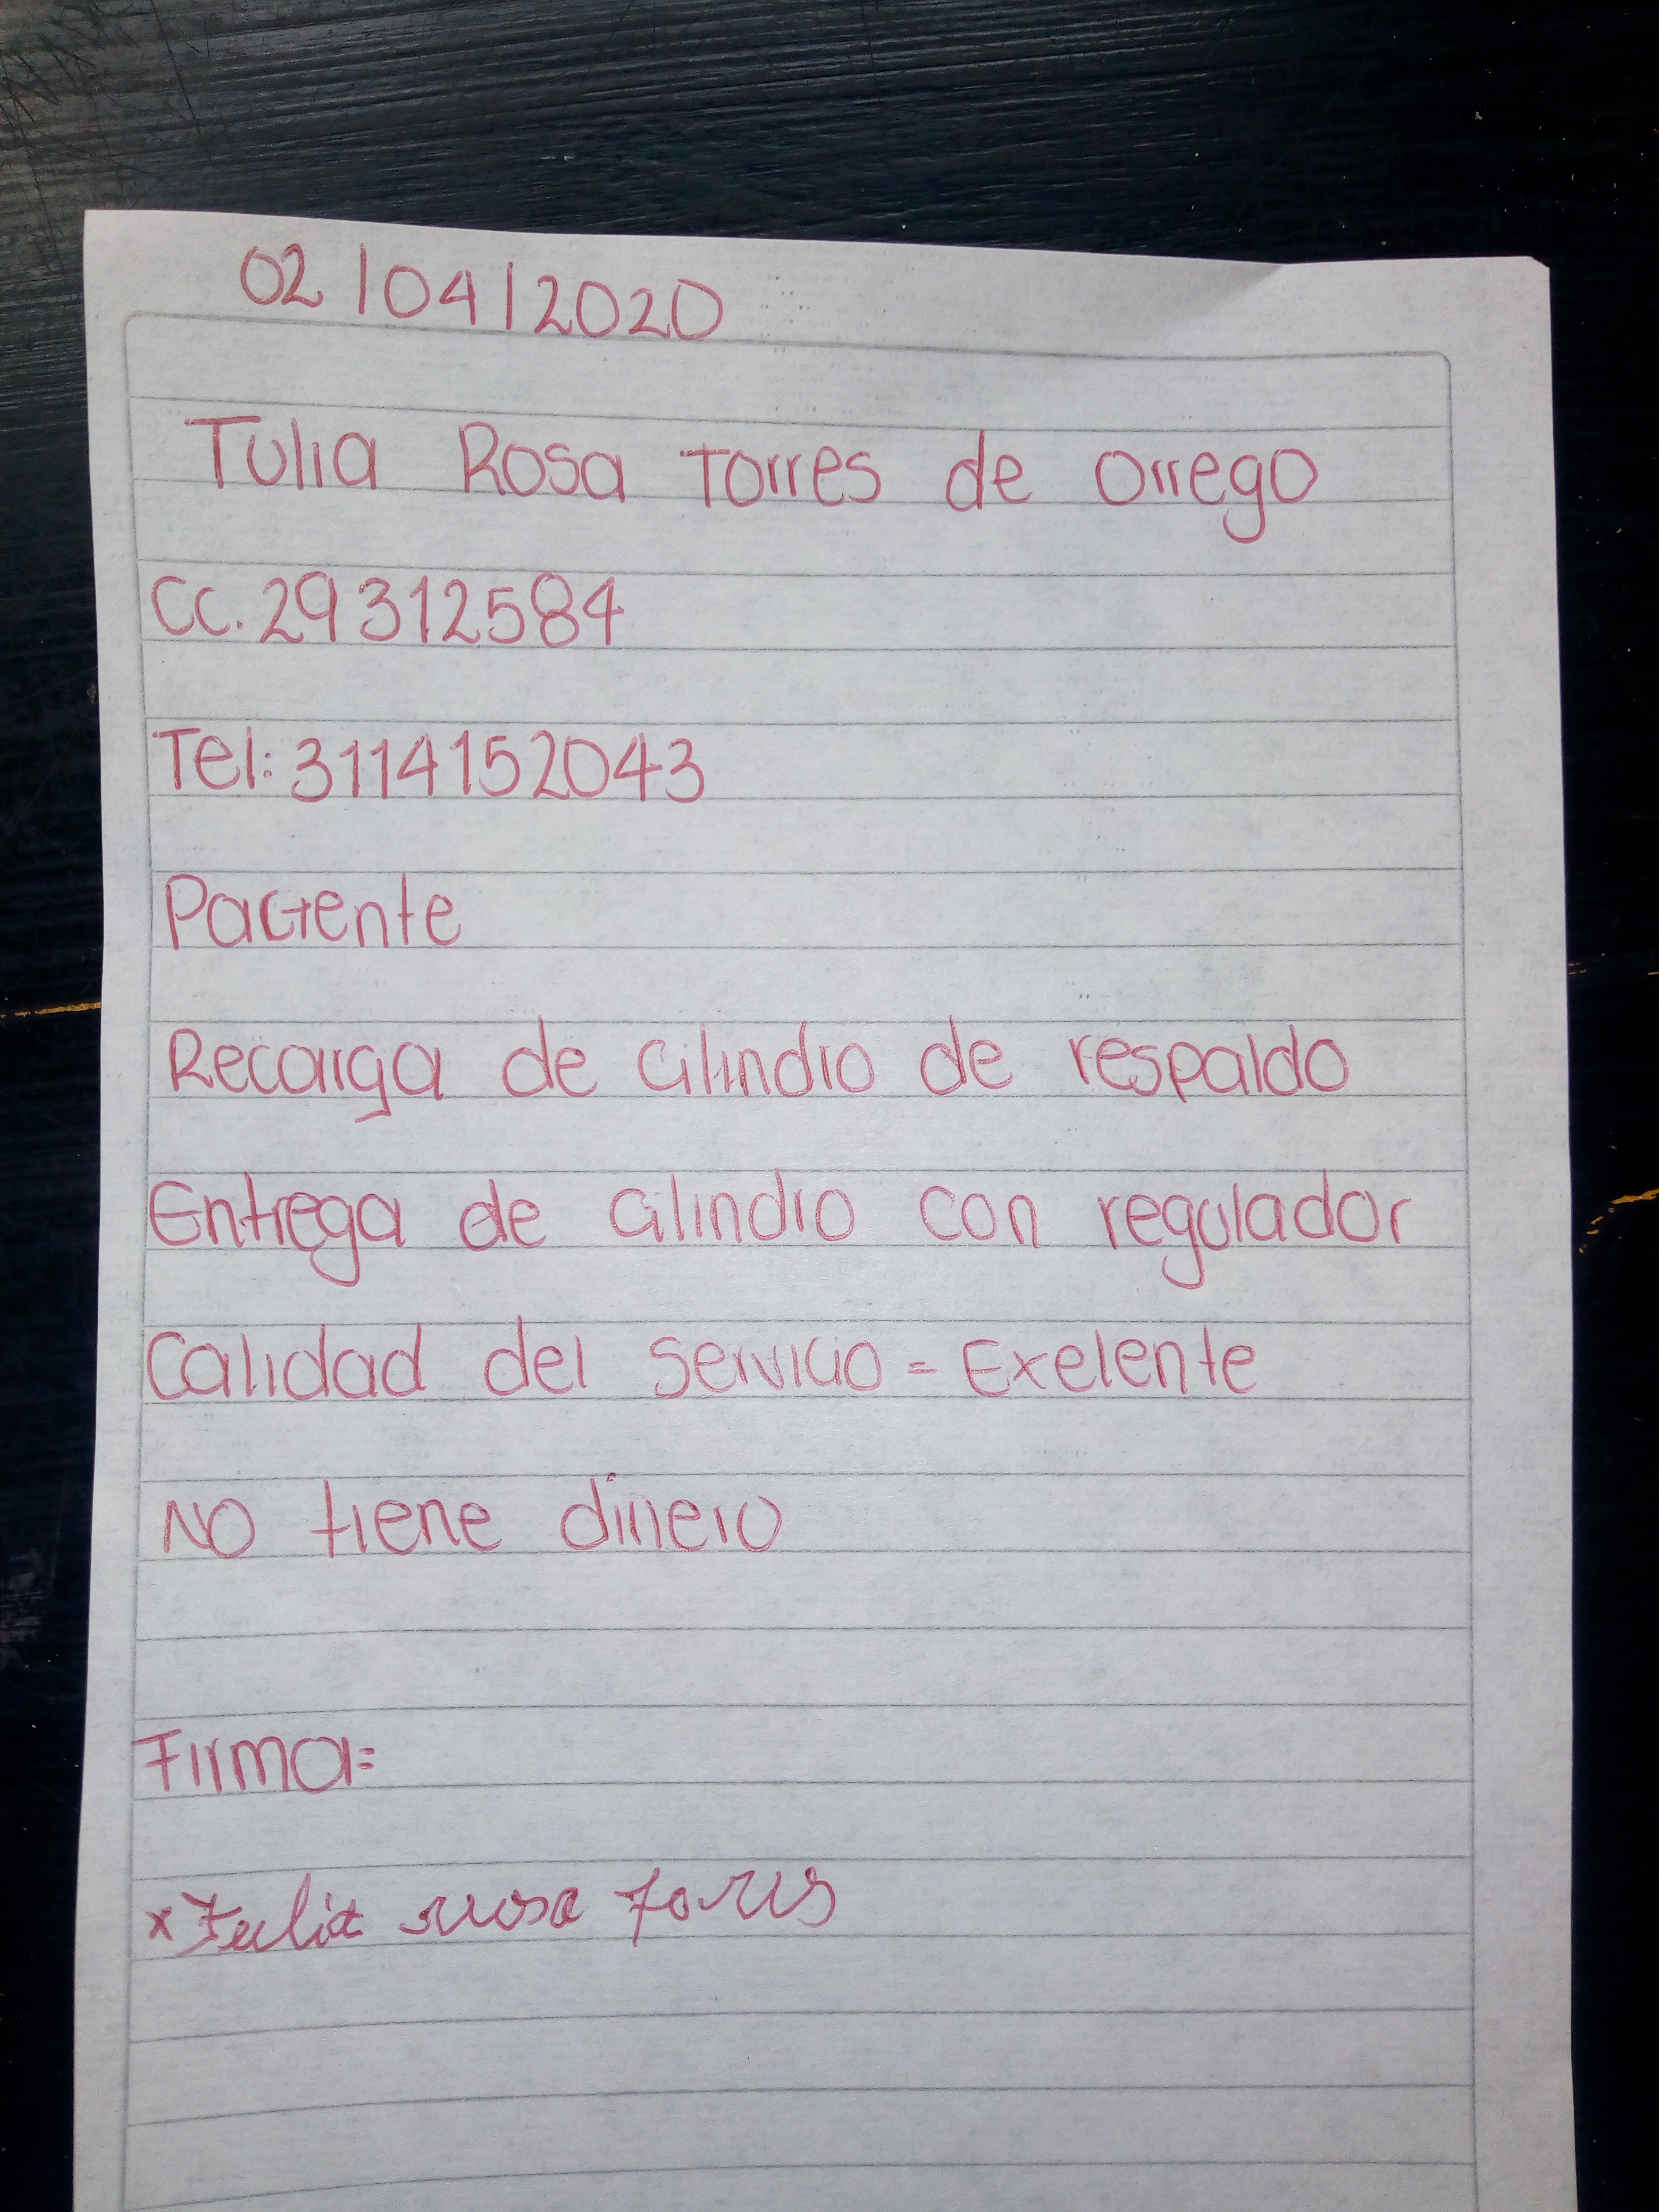 02/04/2020
Tulia Rosa Torres de Orrego
CC. 29312584
Tel: 3114152043
Paciente
Recarga de cilindro de respaldo
Entrega de cilindro con regulador
Calidad del servicio = Exelente
No tiene dinero
Firma=
x Tulia rrosa Torres